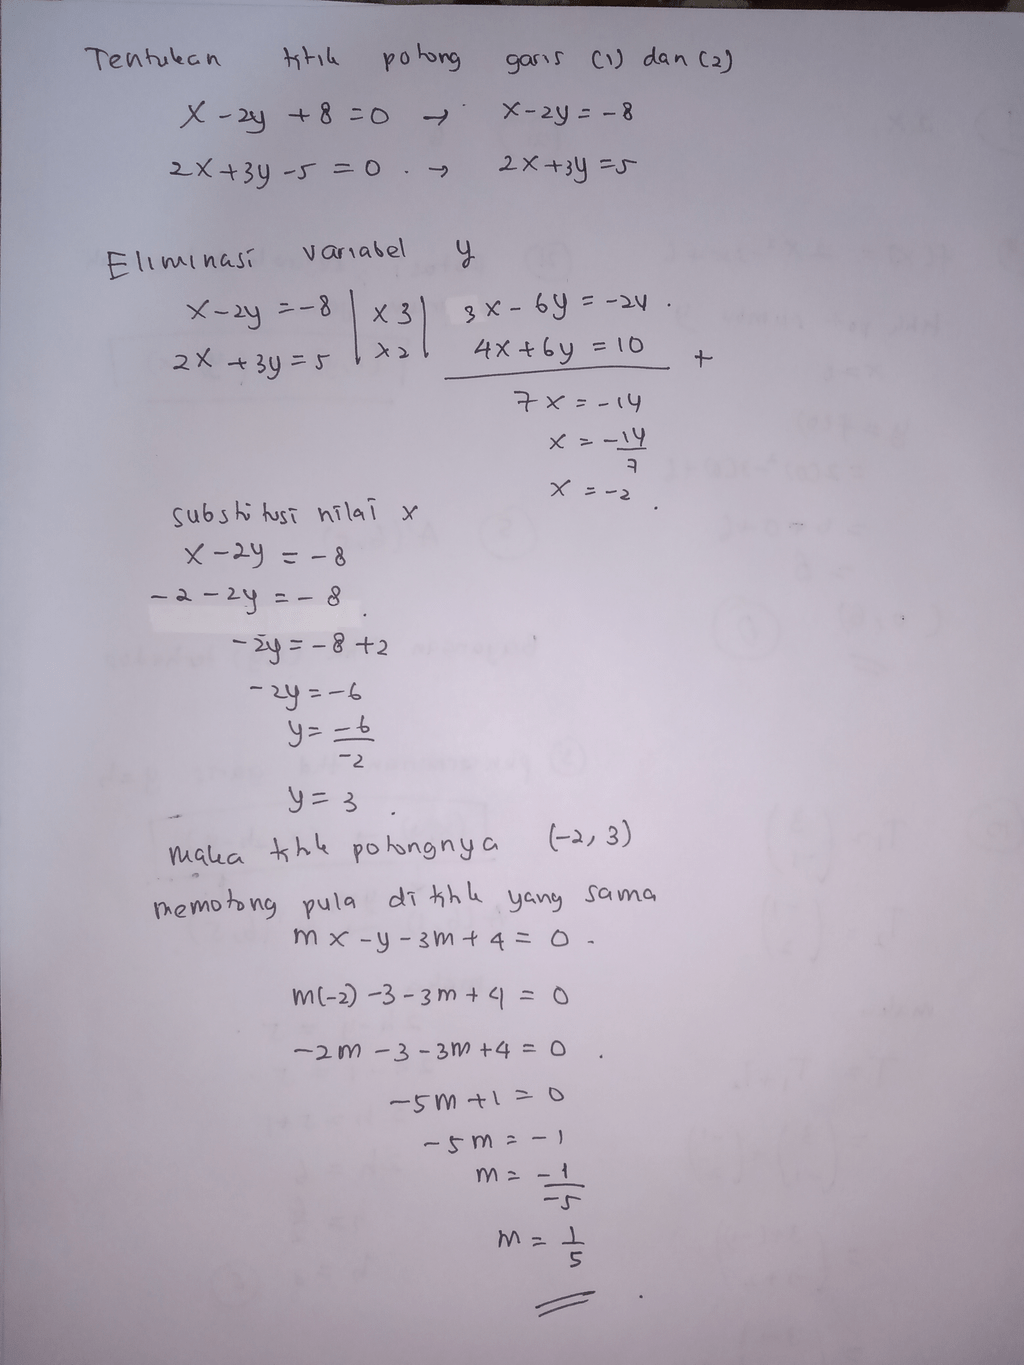 Tentukan titik potong garis (1) dan (2)
x - 2y + 8 = 0 → x - 2y = -8
2x + 3y - 5 = 0 . → 2x + 3y = 5
Eliminasi variabel y
x - 2y = -8 | x 3 | 3x - 6y = -24 .
2x + 3y = 5 | x 2 | 4x + 6y = 10 +
7x = -14
x = -14/7
x = -2 .
substitusi nilai x
x - 2y = -8
-2 - 2y = -8 .
-2y = -8 + 2
-2y = -6
y = -6/-2
y = 3 .
maka titik potongnya (-2, 3)
memotong pula di titik yang sama
mx - y - 3m + 4 = 0 .
m(-2) - 3 - 3m + 4 = 0
-2m - 3 - 3m + 4 = 0 .
-5m + 1 = 0
-5m = -1
m = -1/-5
m = 1/5